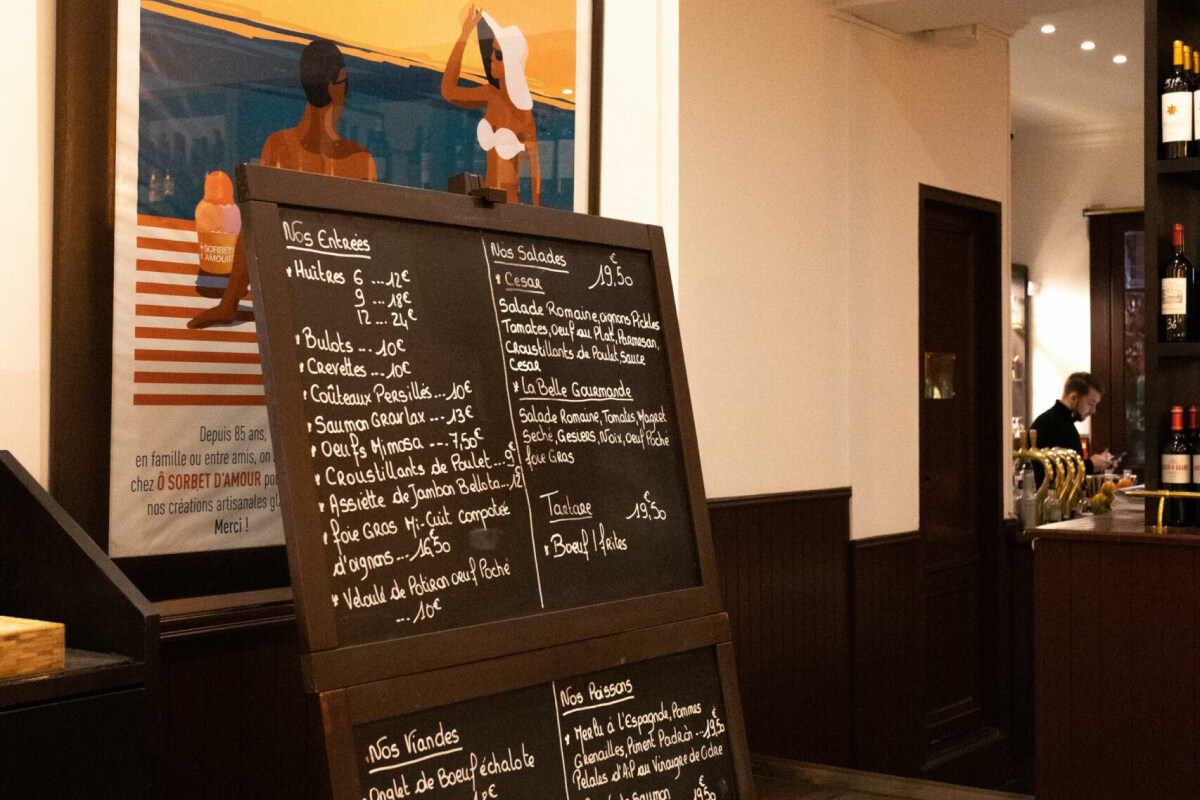 SORBET
AMOUR
Depuis 85 ans,
en famille ou entre amis, on
chez Ô SORBET D'AMOUR
nos créations artisanales
Merci !
Nos Entrées
Huîtres 6 ... 12€
9 ... 18€
12 ... 24€
Bulots ... 10€
Crevettes ... 10€
Coûteaux Persillés ... 10€
Saumon Gravlax ... 13€
Oeufs Mimosa ... 7,50€
Croustillants de Poulet ... 9€
Assiette de Jambon Bellota ... 12
foie Gras Mi-Cuit compotée
d'oignons ... 16,50
Velouté de Potiron oeuf Poché
... 10€
Nos Salades
Cesar 19,50€
Salade Romaine, oignons Pickles
Tomates, oeuf au Plat, Parmesan,
Croustillants de Poulet, sauce
Cesar
La Belle Gourmande
Salade Romaine, Tomates, Magret
Seché, Gesiers, Noix, oeuf Poché
foie Gras
Tartare 19,50€
Boeuf / frites
Nos Viandes
Onglet de Boeuf échalote
Nos Poissons
Merlu à L'Espagnole, Pommes
Grenailles, Piment Padròn ... 19,50€
Petales d'Ail au Vinaigre de Cidre
Saumon 19,50€
36